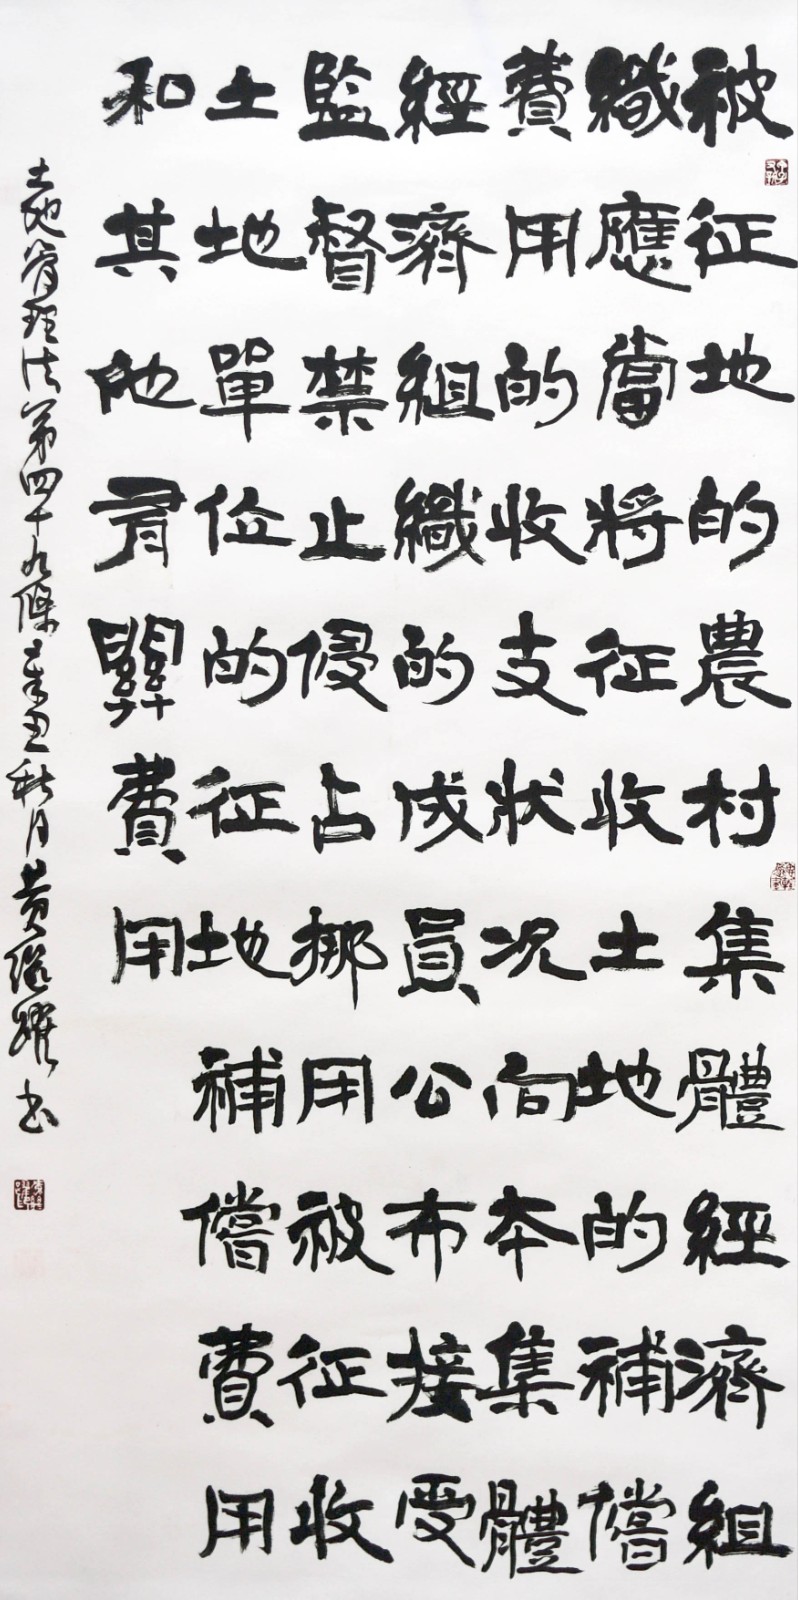 被征地的農村集體經濟組
織應當將征收土地的補償
費用的收支狀况向本集體
經濟組織的成員公布接受
監督禁止侵占挪用被征收
土地單位的征地補償費用
和其他有關費用
土地管理法第四十九條辛丑秋月黄繼耀书